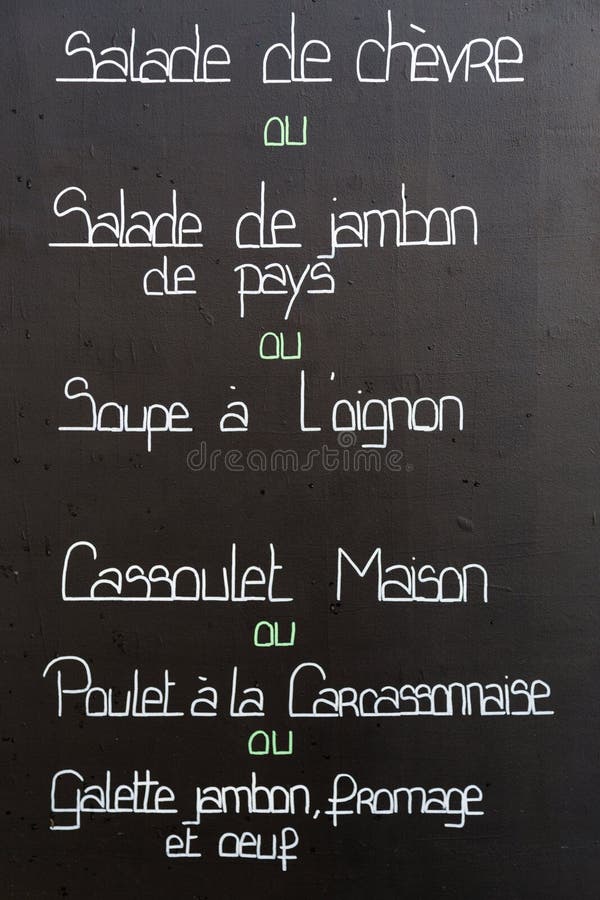 Salade de chèvre
ou
Salade de jambon
de pays
ou
Soupe à L'oignon
dreamstime
Cassoulet Maison
ou
Poulet à la Carcassonnaise
ou
Galette jambon, fromage
et oeuf